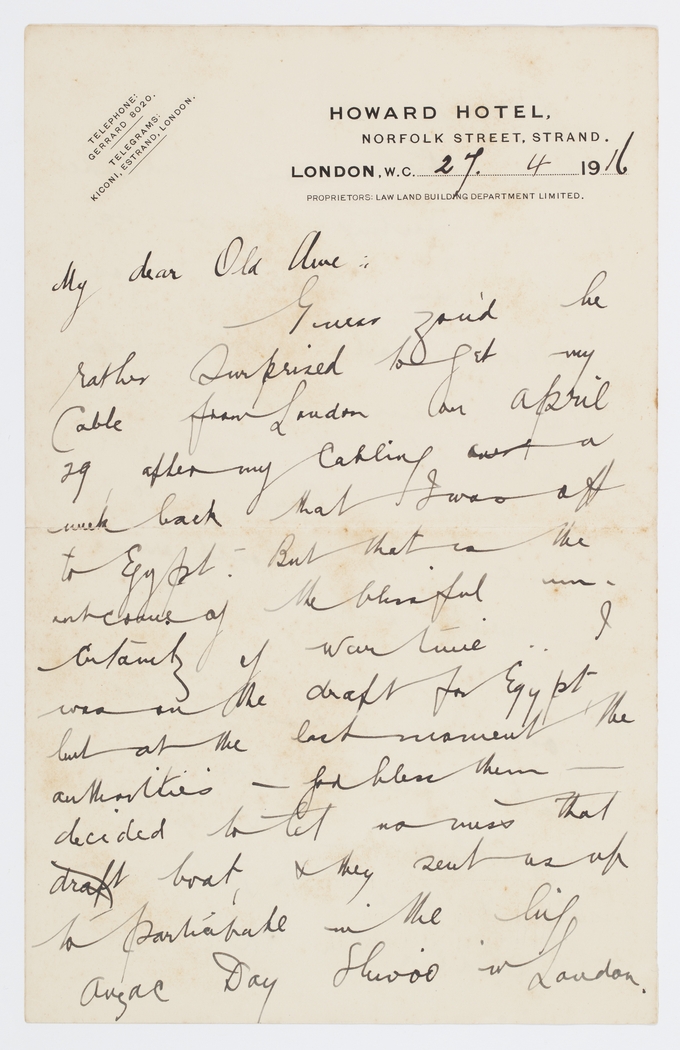 TELEPHONE:
GERRARD 8020.
TELEGRAMS:
KICONI, ESTRAND, LONDON.
HOWARD HOTEL,
NORFOLK STREET, STRAND.
LONDON, W.C. 27. 4 1916
PROPRIETORS: LAW LAND BUILDING DEPARTMENT LIMITED.
My dear Old
Guess you'd be
rather surprised to get my
Cable from London on April
29, after my Cabling a
week back that I was off
to Egypt. But that is the
outcome of the blissful un-
certainty of war time .. I
was on the draft for Egypt
but at the last moment the
authorities — God bless them —
decided to let us miss that
draft boat, & they sent us up
to participate in the big
Anzac Day Shivoo in London.